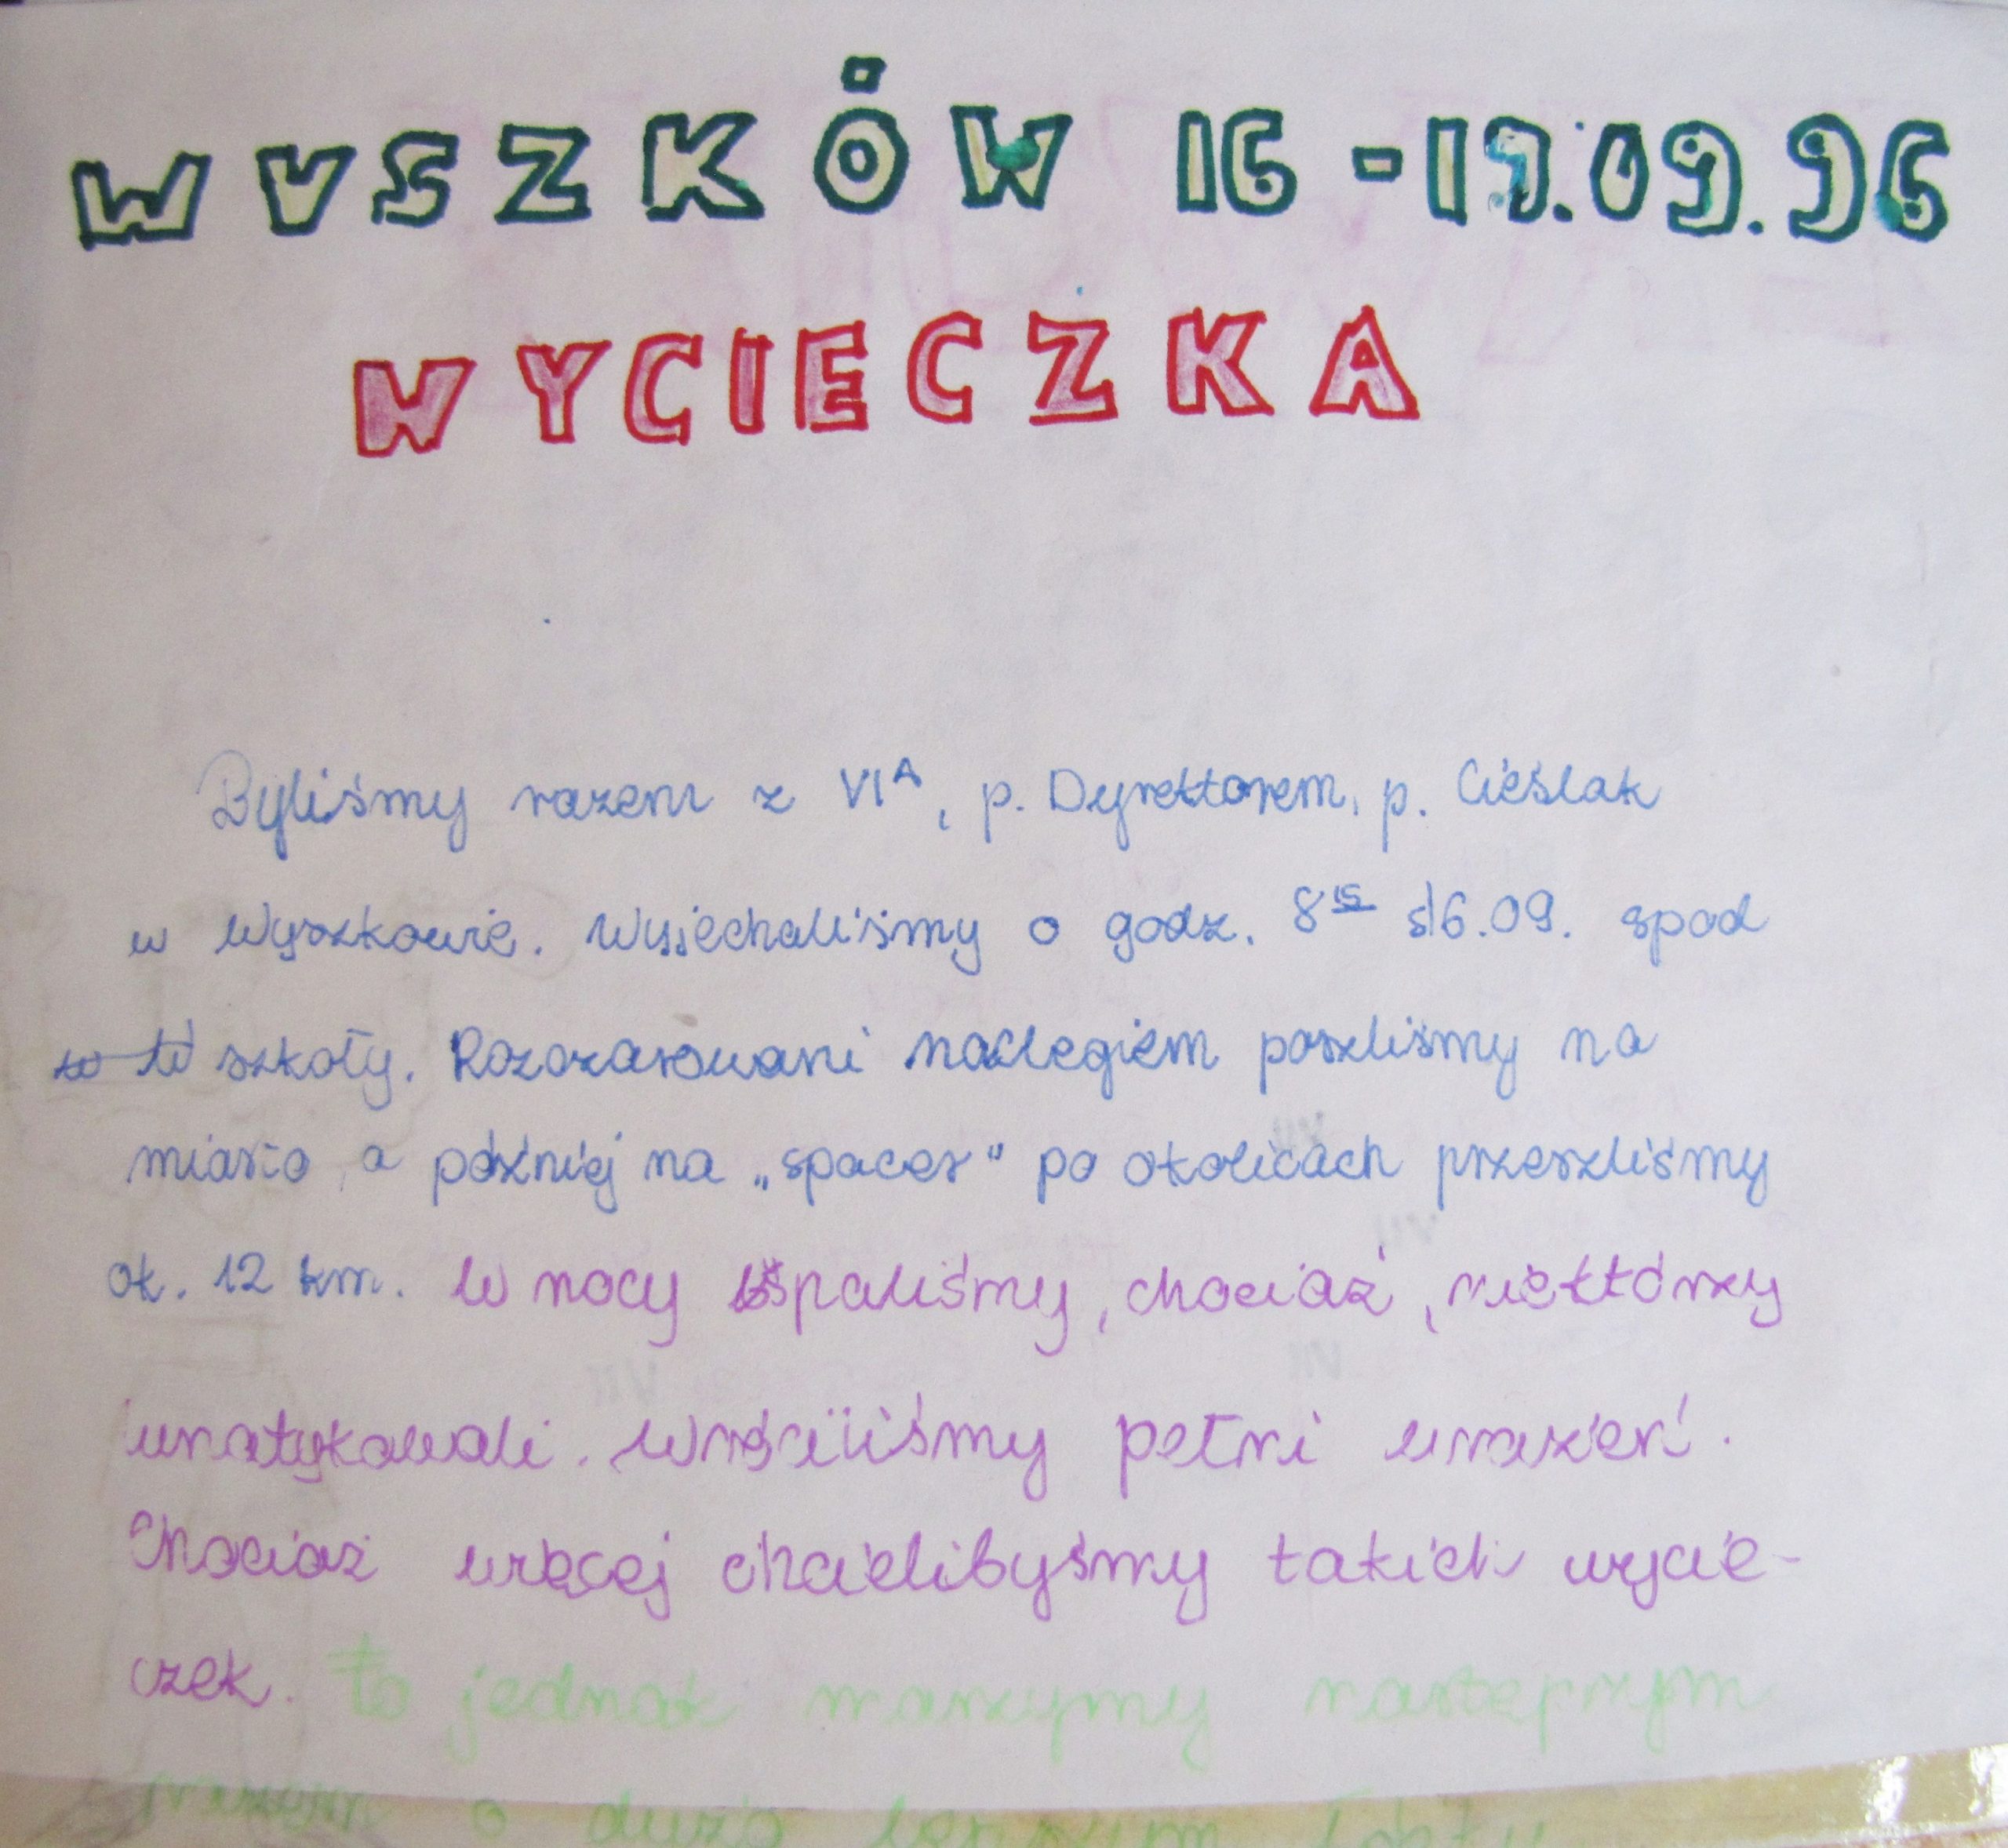 WYSZKÓW 16-17.09.96
WYCIECZKA
Byliśmy razem z VIA, p. Dyrektorem, p. Cieślak
w Wyszkowie. Wyjechaliśmy o godz. 8 15 16.09. spod
szkoły. Rozczarowani noclegiem poszliśmy na
miasto, a później na „spacer" po okolicach przeszliśmy
ok. 12 km. W nocy spaliśmy, chociaż, niektórzy
wróciliśmy pełni wrażeń.
Chociaż więcej chcielibyśmy takich wycie-
czek. To jednak marzymy następnym
razem o dużo lepszym